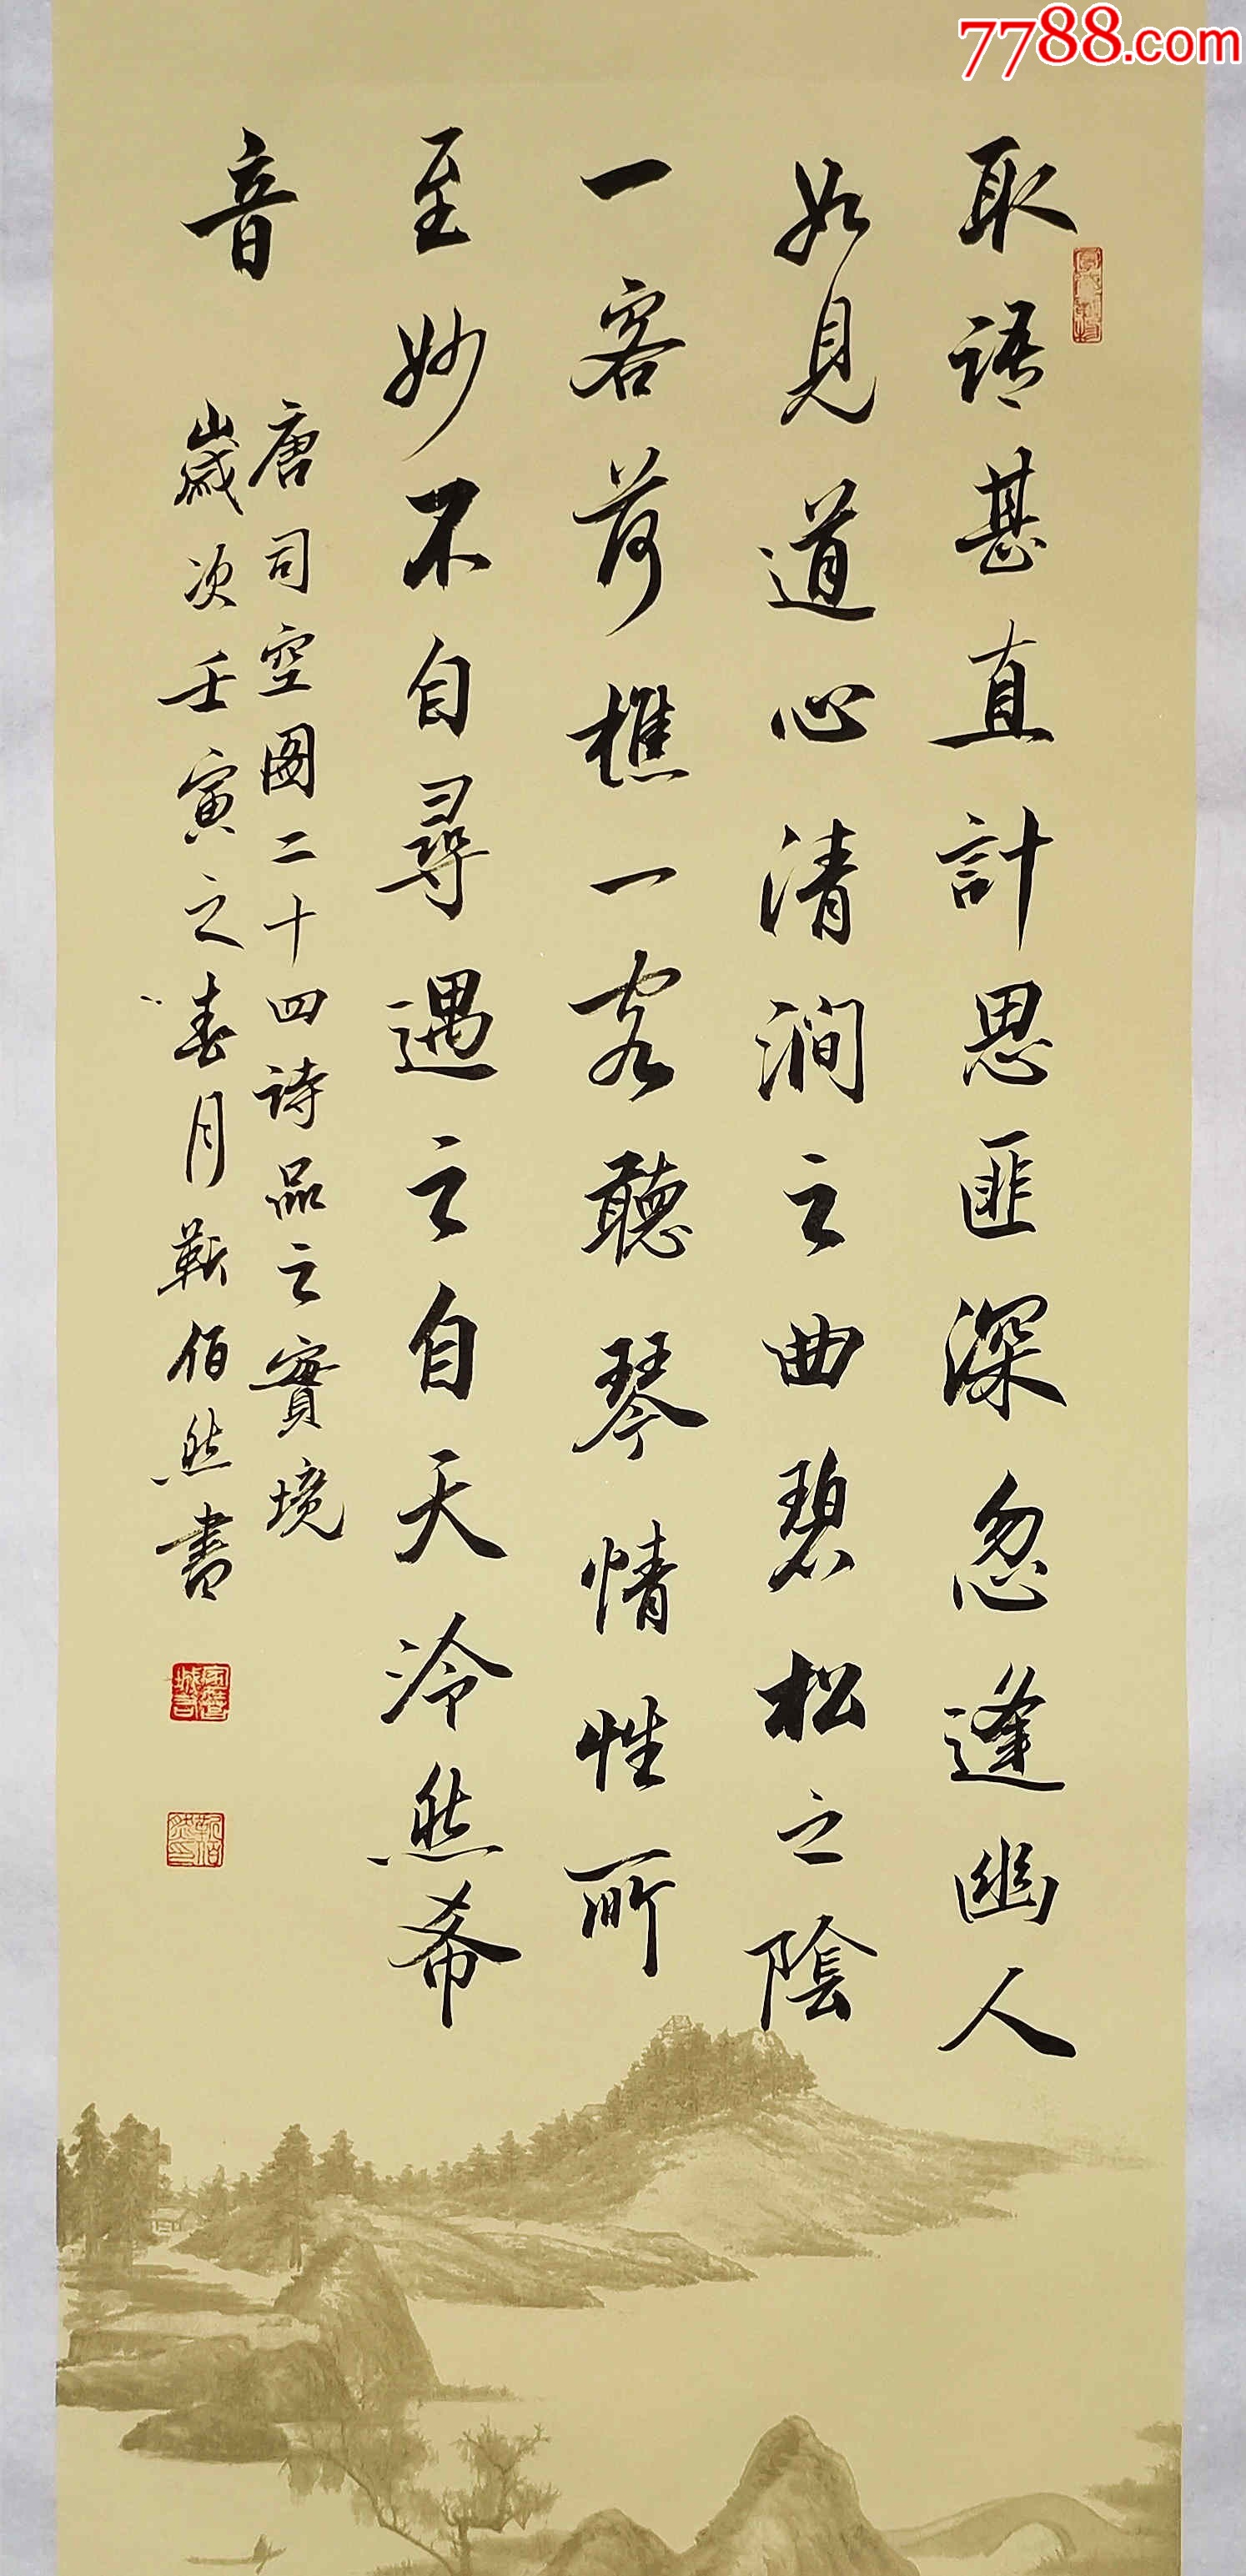 7788.com
取語甚直計思匪深忽逢幽人
如見道心清澗之曲碧松之陰
一客荷樵一客聽琴情性所
至妙不自尋遇之自天泠然希
音
唐司空图二十四詩品之實境
歲次壬寅之春月靳佰然書